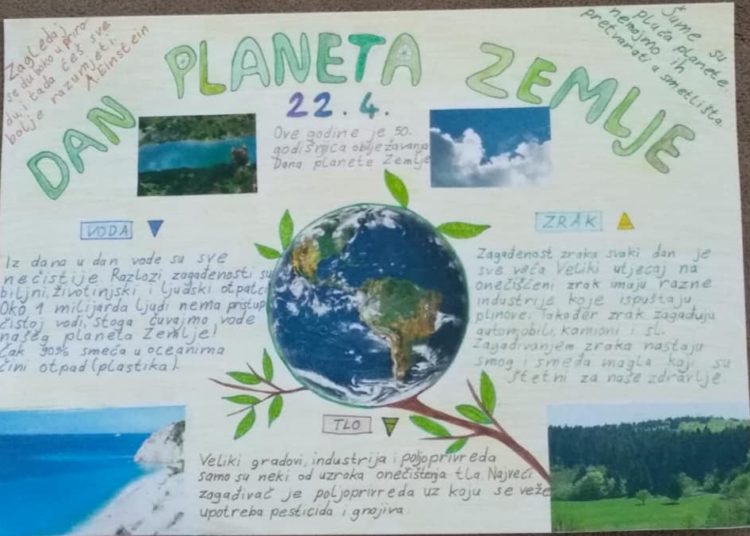 Zagledaj
se duboko u priro
du, i tada ćeš sve
bolje razumjeti.
A. Einstein
DAN PLANETA ZEMLJE
22.4.
Šume su
pluća planete
nemojmo ih
pretvarati u smetlišta.
Ove godine je 50.
godišnjica obilježavanja
Dana planete Zemlje
VODA
Iz dana u dan vode su sve
nečistije. Razlozi zagađenosti su
biljni, životinjski i ljudski otpatci
Oko 1 milijarda ljudi nema pristup
čistoj vodi, stoga čuvajmo vode
našeg planeta Zemlje!
Čak 90% smeća u oceanima
čini otpad (plastika).
ZRAK
Zagađenost zraka svaki dan je
sve veća Veliki utjecaj na
onečišćeni zrak imaju razne
industrije koje ispuštaju
plinove. Također zrak zagađuju
automobili, kamioni i sl.
Zagađivanjem zraka nastaju
smog i smeđa magla koji su
štetni za naše zdravlje
TLO
Veliki gradovi, industrija i poljoprivreda
samo su neki od uzroka onečištenja tla. Najveći
zagađivač je poljoprivreda uz koju se veže
upotreba pesticida i gnojiva